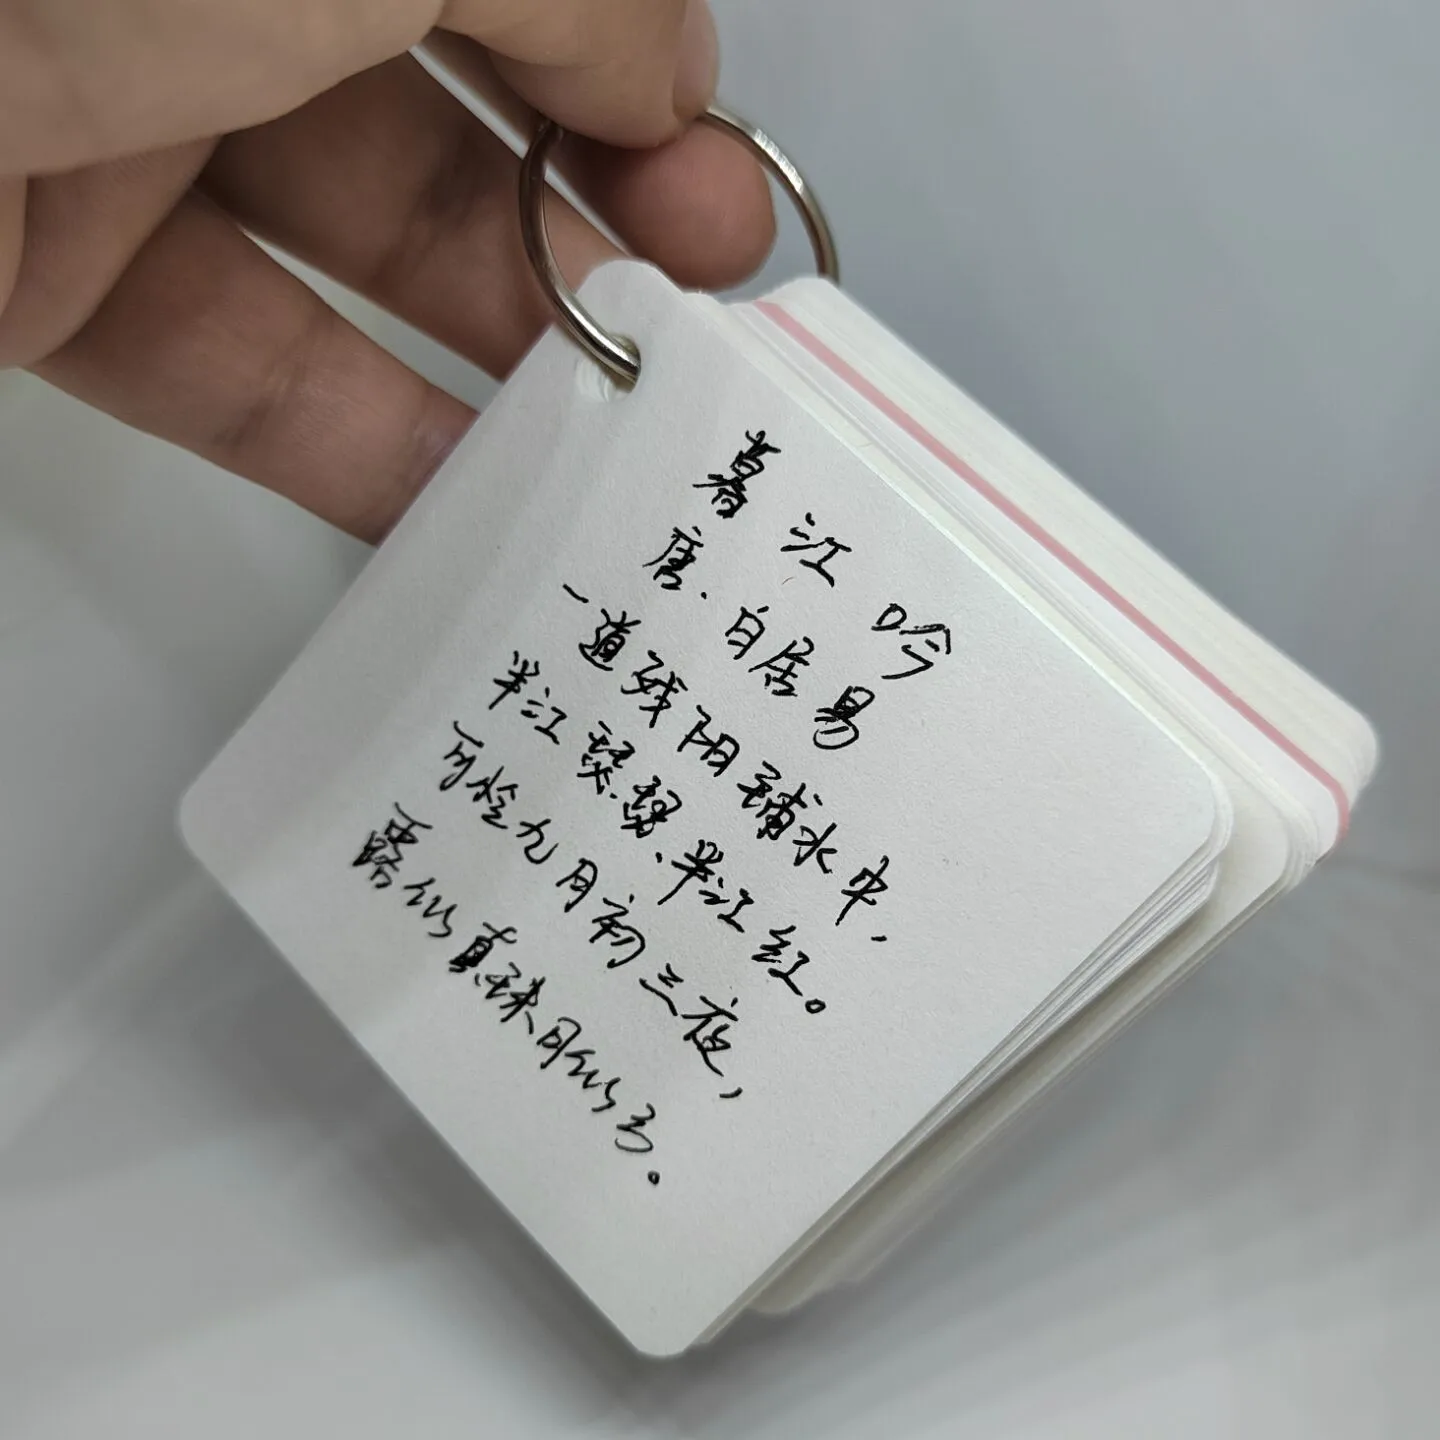 暮江吟
唐.白居易
一道残阳铺水中,
半江瑟瑟半江红。
可怜九月初三夜,
露似真珠月似弓。